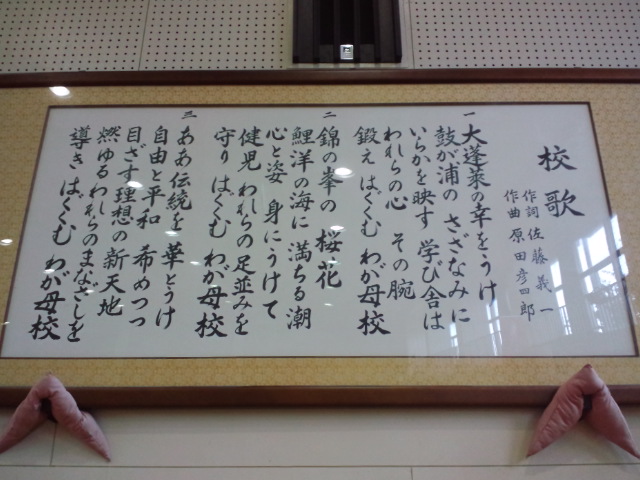 校歌
作詞 佐藤義一
作曲 原田彦四郎
一 大蓬莱の幸をうけ
鼓が浦の さざなみに
いらかを映す 学び舎は
われらの心 その腕
鍛え はぐくむ わが母校
二 錦の峯の 桜花
鯉洋の海に 満ちる潮
心と姿 身にうけて
健児 われらの足並みを
守り はぐくむ わが母校
三 ああ伝統を 華とうけ
自由と平和 希めつつ
目ざす理想の 新天地
燃ゆるわれらのまなざしを
導き はぐくむ わが母校